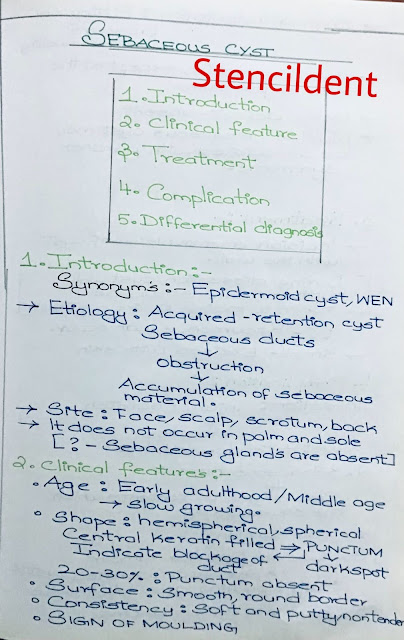 SEBACEOUS CYST
Stencildent
1. Introduction
2. Clinical feature
3. Treatment
4. Complication
5. Differential diagnosis
1. Introduction :-
Synonym's :- Epidermoid cyst, WEN
→ Etiology : Acquired - retention cyst
Sebaceous ducts
↓
obstruction
↓
Accumulation of sebaceous
material.
→ Site : Face, scalp, scrotum, back
→ It does not occur in palm and sole
[? - Sebaceous gland's are absent]
2. Clinical features :-
• Age : Early adulthood / Middle age
→ slow growing.
• Shape : hemispherical, spherical
Central keratin filled ⇒ PUNCTUM
Indicate blockage of ← darkspot
duct
20-30% : Punctum absent
• Surface : Smooth, round border
• Consistency : Soft and putty, nontender
• SIGN OF MOULDING